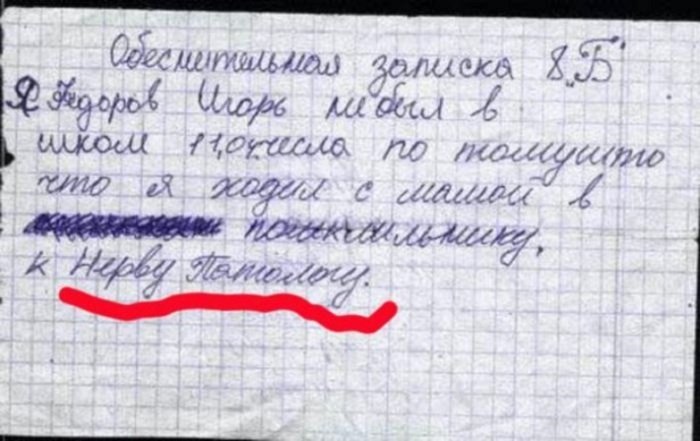 Обеснительная записка 8 „Б"
Я Федоров Игорь не был в
школ 11,04 числа по томушто
что я ходил с мамой в
к Нерву Патологу.